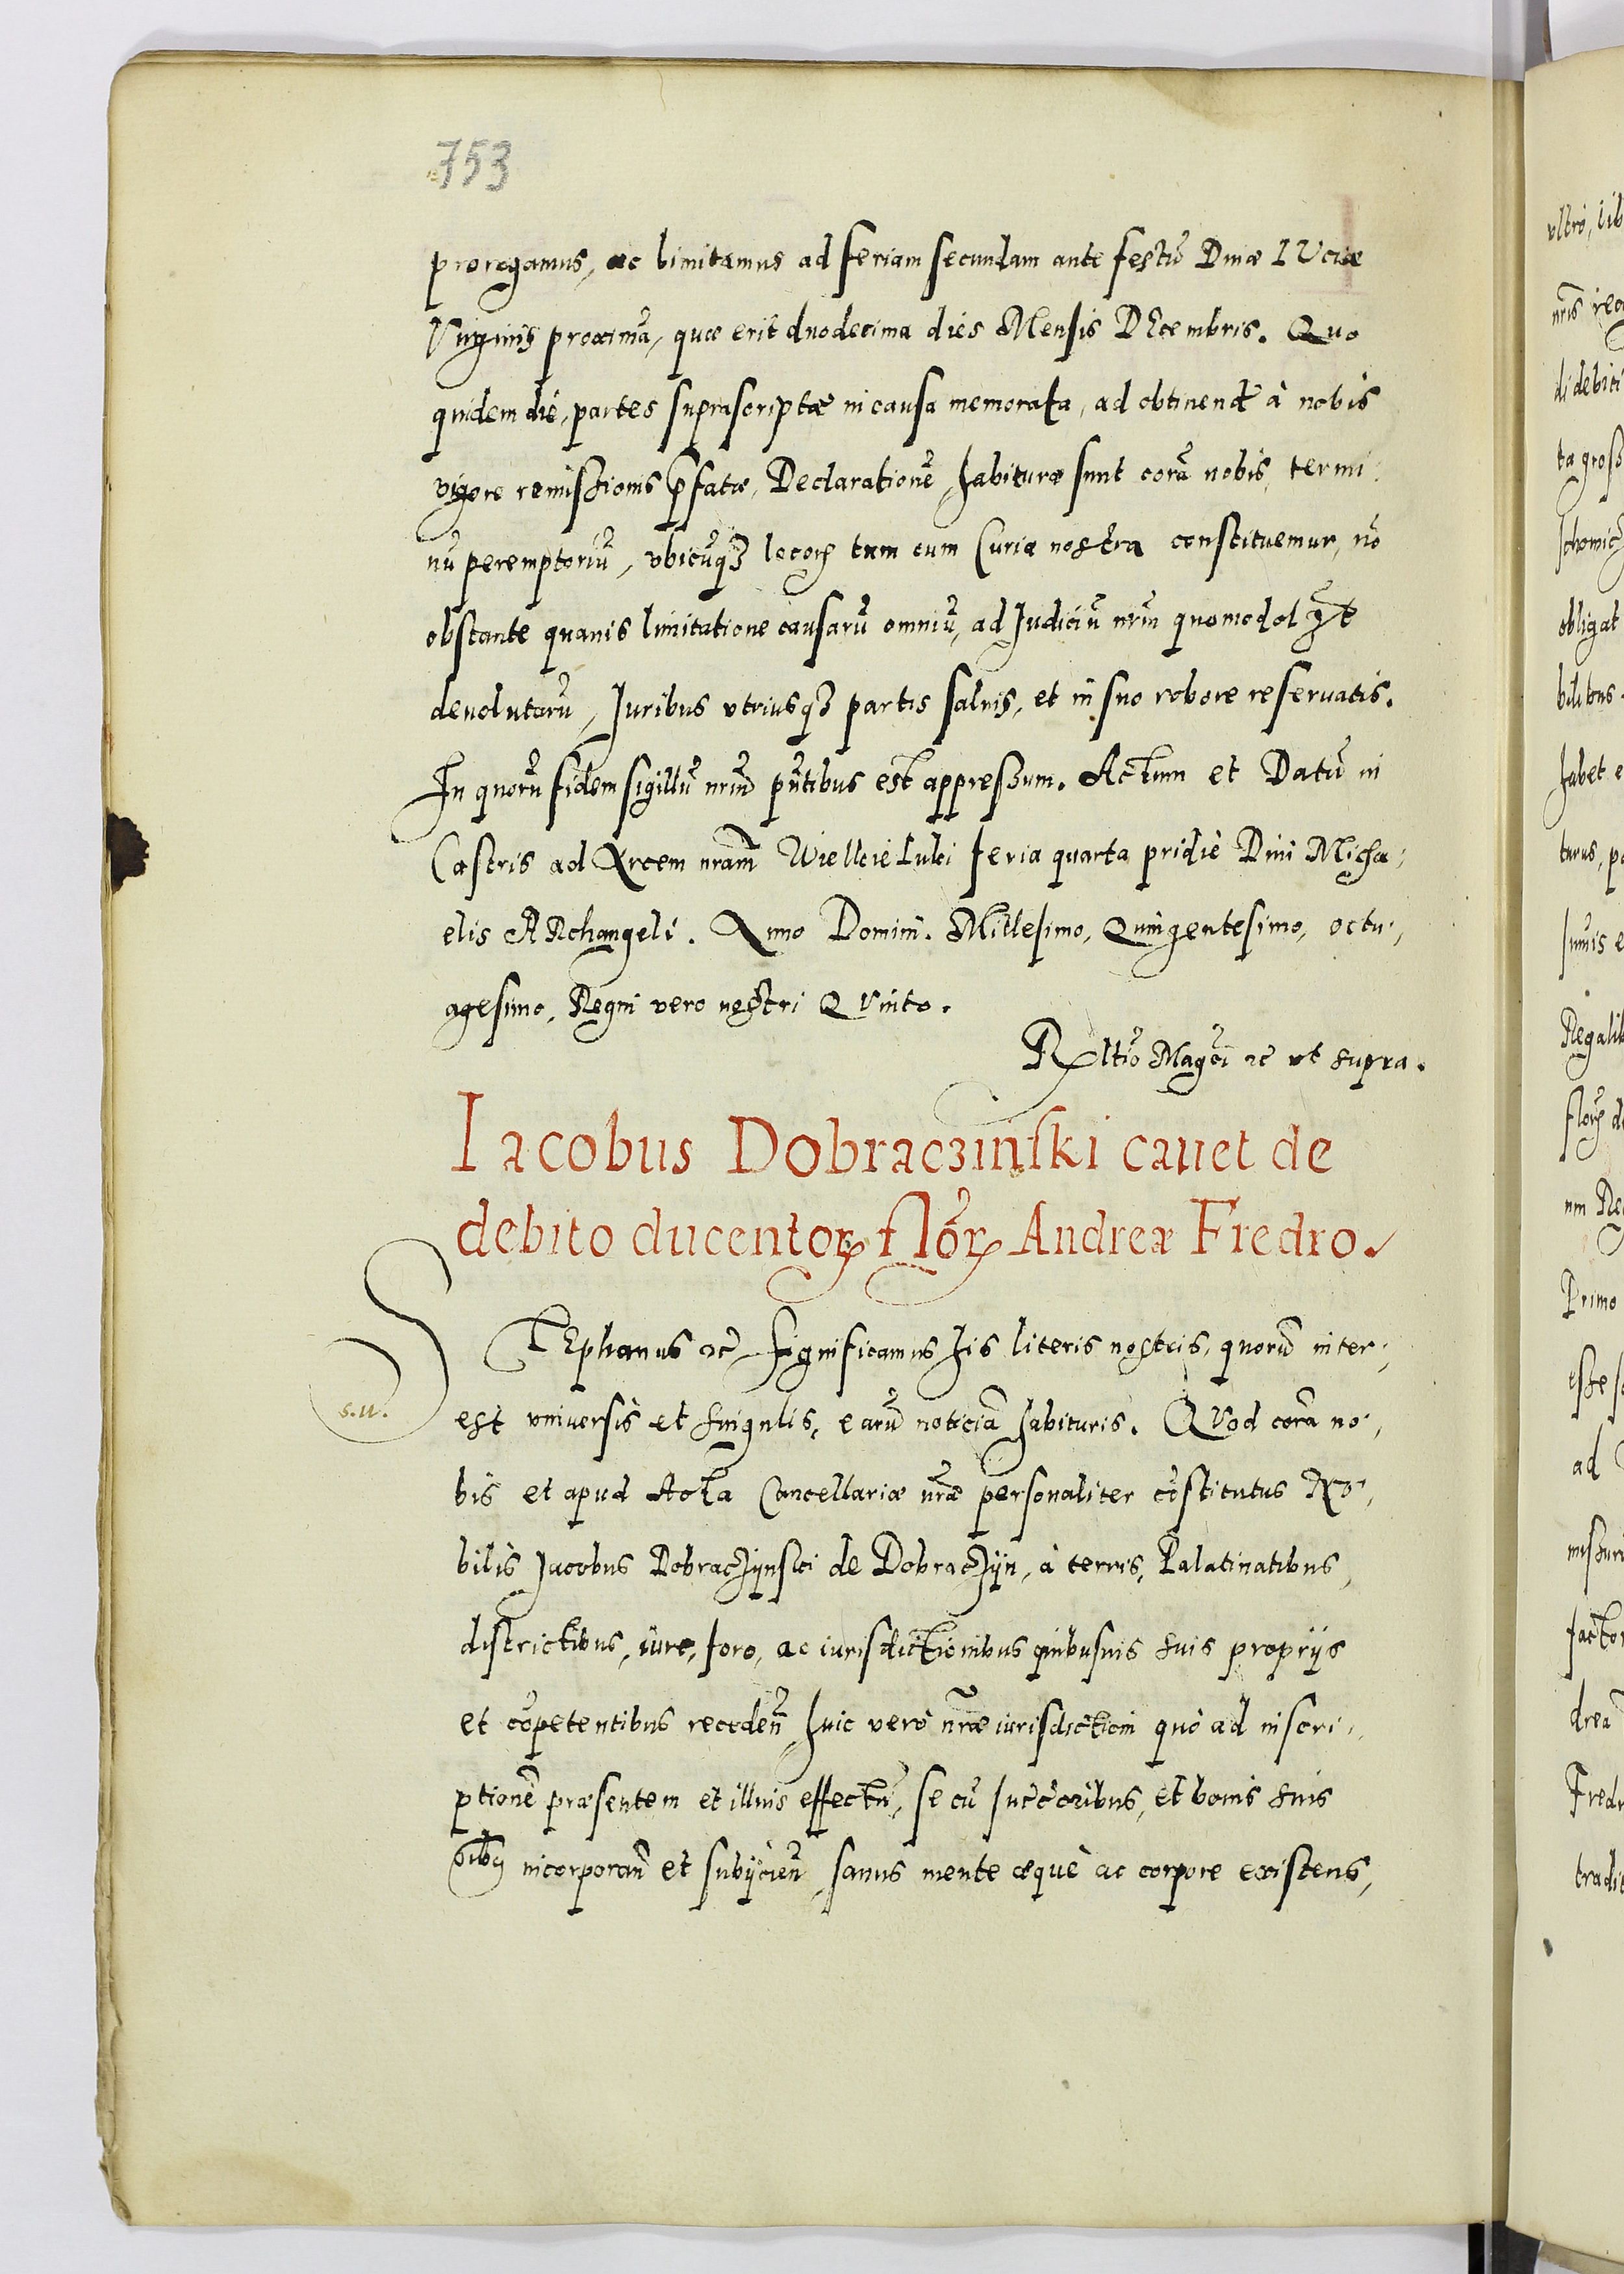 753
prorogamus, ac limitamus ad feriam secundam ante festũ Diuæ LUciæ
Virginis proximã, quæ erit duodecima dies Mensis DEcembris. Quo
quidem die, partes suprascriptæ in causa memorata, ad obtinend̃ à nobis
vigore remissionis p̃fatæ, Declarationẽ, habituræ sunt corã nobis, termi:
nũ peremptoriũ, vbicũq3 locorꝝ tum cum Curia nostra constituemur, nõ
obstante quauis limitatione causarũ omniũ, ad Judiciũ nr̃m quomodol3t
deuolutarũ, Juribus vtriusq3 partis saluis, et in suo robore reseruatis.
In quorũ fidem sigillũ nr̃um pñtibus est appressum. Actum et Datũ in
Castris ad Arcem nram̃ Wielkie Luki feria quarta pridiè Diui Micha:
elis ARchangeli. Anno Domini. Millesimo, Quingentesimo, octu:,
agesimo, Regni vero nostri QVinto.
Rltio Magci ꝛc̃ vt supra.
Iacobus Dobraczinski cauet de
debito ducentorꝝ flõrꝝ Andreæ Fredro.
STEphanus ꝛc̃ Significamus his literis nostris, quorũ inter:,
s.u.
est vniuersis et singulis, earũ noticiã habituris. QVod corã no:,
bis et apud Acta Cancellariæ nr̃æ personaliter cõstitutus No:,
bilis Jacobus Dobraczijnski de Dobraczijn, à terris, Palatinatibus,
districtibus, iure, foro, ac iurisdictionibus quibusuis suis proprijs
et cõpetentibus recedeñ, huic verò nr̃æ iurisdictioni quò ad inscri:,
ptionẽ præsentem et illius effectũ, se cũ succ̃oribus, et bonis suis
oĩbꝯ incorporañ et subijcieñ, sanus mente æquè ac corpore existens,
vltrò, lib
nr̃is reco
di debiti
ta gross
obligat
bilitous
habet e
turus, pa
summis e
Regalib
florꝝ d
um Re
Primo
esse s
ad
missuru
factor
dreã
Fredr
tradic